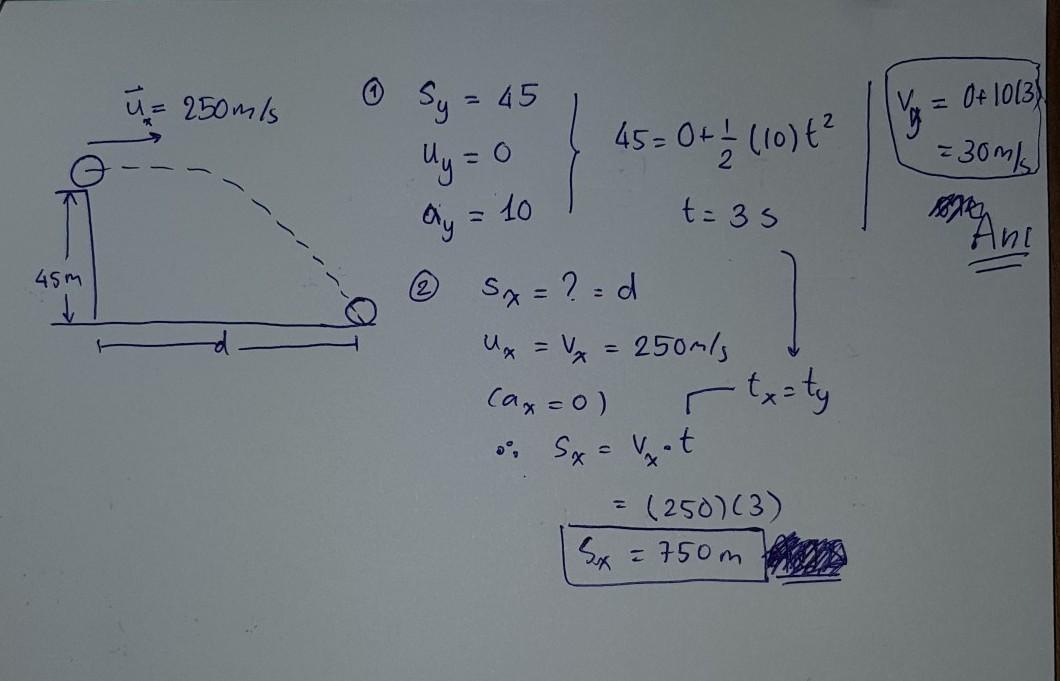 u⃗ₓ = 250m/s
45m
d
① Sy = 45
uy = 0
ay = 10
45 = 0 + 1/2 (10) t²
t = 3 s
Vy = 0 + 10(3)
= 30 m/s
Ans
② Sx = ? = d
ux = Vx = 250m/s
(ax = 0)
tx = ty
∴ Sx = Vx · t
= (250)(3)
Sx = 750 m